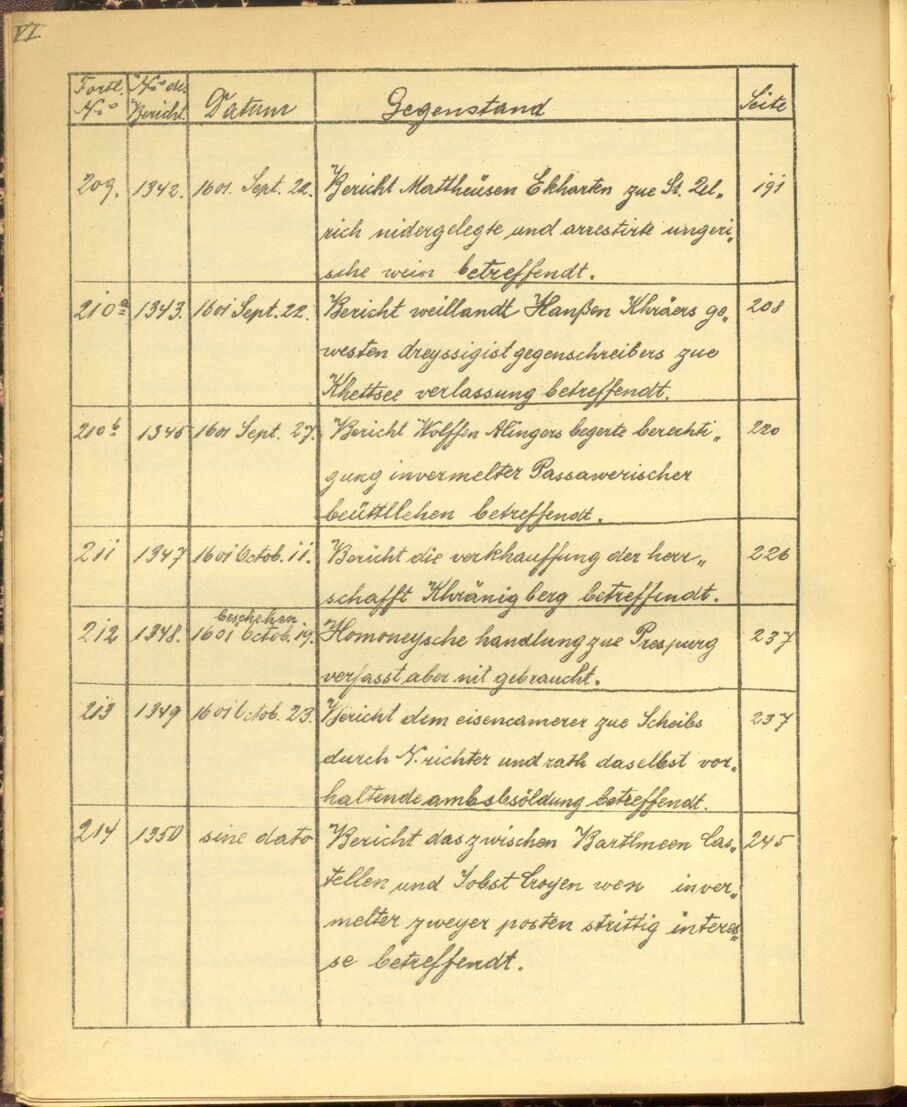 VI
Fortl. No No des Bericht. Datum Gegenstand Seite
209. 1342. 1601. Sept. 22. Bericht Mattheüsen Ekharten zue St. Ul„ 191
rich nidergelegte und arrestirte ungeri„
sche wein betreffendt.
210a 1343. 1601 Sept. 22. Bericht weillandt Hanßen Khräers ge„ 208
westen dreyssigist gegenschreibers zue
Khettsee verlassung betreffendt.
210b 1345 1601 Sept. 27. Bericht Wolffen Alingers begerte berechti„ 220
gung invermelter Passawerischer
beüttllehen betreffendt.
211 1347 1601 Octob. 11. Bericht die verkhauffung der herr„ 226
schafft Khränigberg betreffendt.
beschehen.
212 1348. 1601 Octob. 19. Homoneysche handlung zue Prespurg 237
verfasst aber nit gebraucht.
213 1349 1601 Octob. 23. Bericht dem eisencamerer zue Scheibs 237
durch N. richter und rath daselbst vor„
haltende ambsbsöldung betreffendt.
214 1350 sine dato Bericht das zwischen Bartlmeen Cas„ 245
tellen und Jobst Croyen wen inver„
melter zweyer posten strittig interes„
se betreffendt.